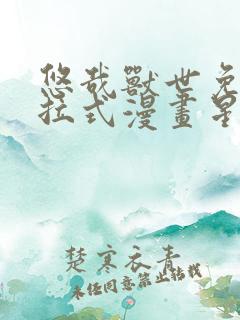 悠哉獸世兔
拉式漫畫星
楚寒衣青
未经同意禁止转载